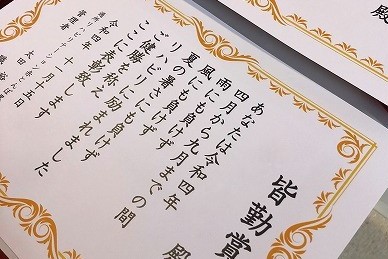 皆勤賞
殿
あなたは令和四年
四月から九月までの間
雨にも
風にも負けず
夏の暑さにも負けず
リ に励まれました
ご健闘を称え
ここに表彰致します
令和四年 十一月五日
管理者 太田
殿